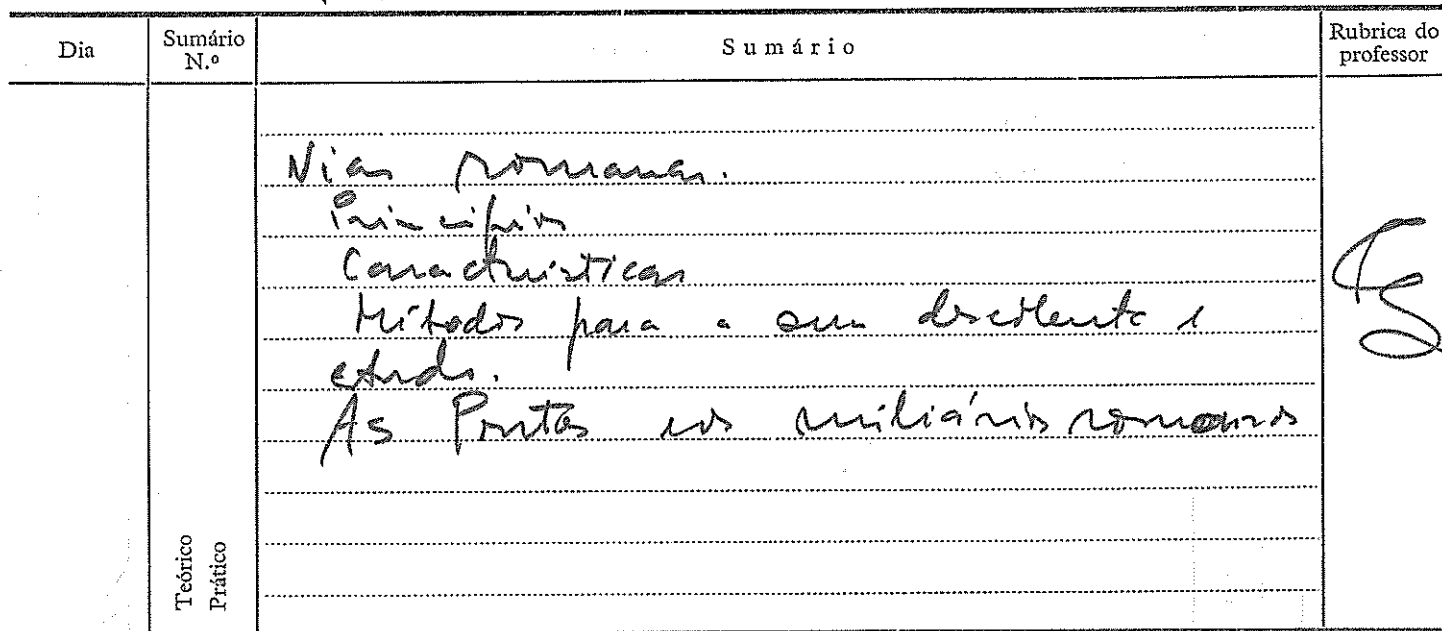 Dia
Sumário N.º
Sumário
Rubrica do professor
Vias romanas.
Princípios
Características
Métodos para a sua descoberta e
estudo.
As Pontes e os miliários romanos
Teórico
Prático